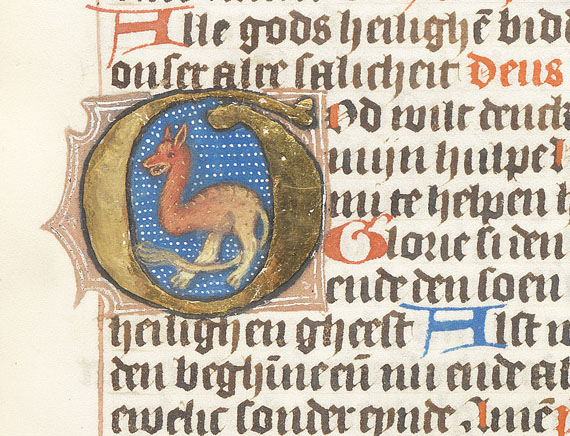 Alle gods heilighē bidd
onser alre salicheit Deus
God wilt denck
mijn hulpe
mi te helpen h
Glorie si den
ende den soen
heilighen gheest Alst
den beghinne en̄ nu ende al
ewelic sonder eynde Amē